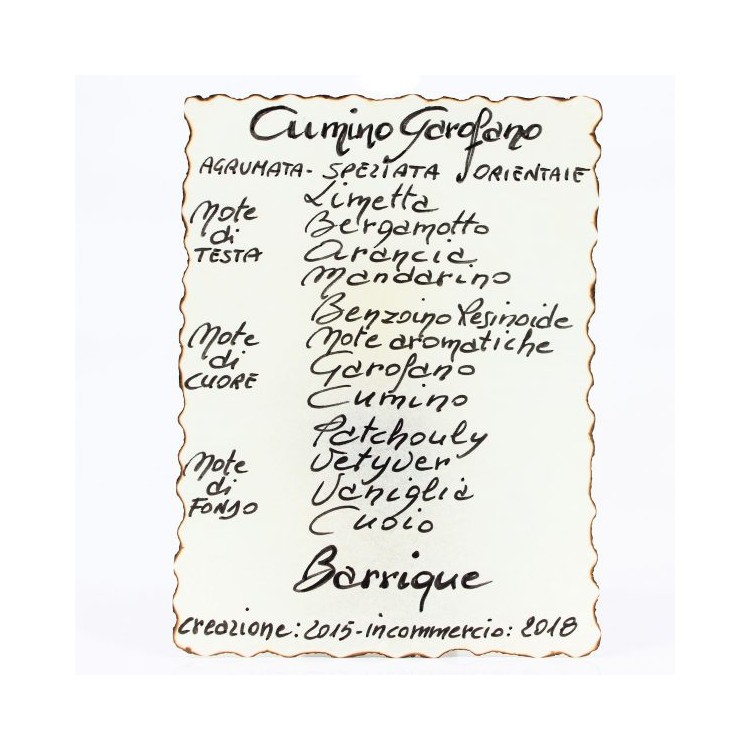 Cumino Garofano
AGRUMATA - SPEZIATA ORIENTALE
Note di TESTA
Limetta
Bergamotto
Arancia
Mandarino
Note di CUORE
Benzoino Resinoide
Note aromatiche
Garofano
Cumino
Note di FONDO
Patchouly
Vetyver
Vaniglia
Cuoio
Barrique
creazione: 2015 - in commercio: 2018